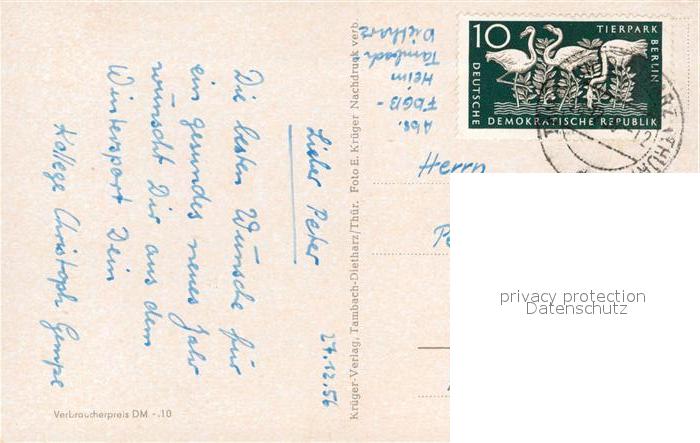 27.12.56
Lieber Peter
Die besten Wünsche für
ein gesundes neues Jahr
wünscht Dir aus dem
Wintersport Dein
Kollege Christoph
Abs.
Heim
Tambach
Dietharz
Herrn
Krüger-Verlag, Tambach-Dietharz/Thür. Foto E. Krüger Nachdruck verb.
Verbraucherpreis DM -.10
10
TIERPARK
BERLIN
DEUTSCHE
DEMOKRATISCHE REPUBLIK
privacy protection
Datenschutz